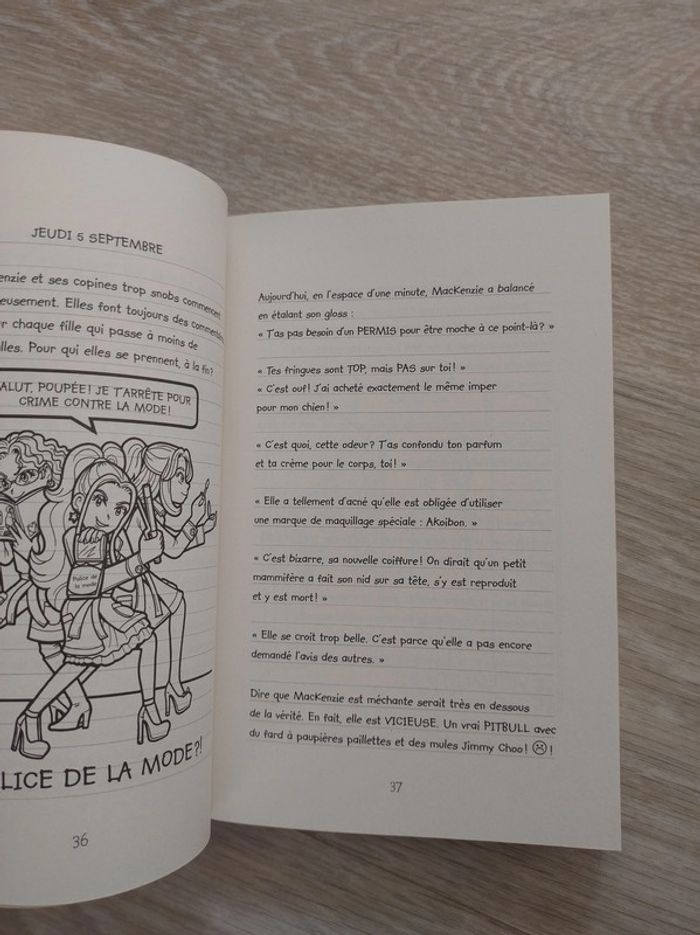 JEUDI 5 SEPTEMBRE
et ses copines trop snobs commencent
Elles font toujours des
chaque fille qui passe à moins de
Pour qui elles se prennent, à la fin?
POUPÉE! JE T'ARRÊTE POUR
CRIME CONTRE LA MODE!
Police de
la mode
DE LA MODE?!
36
Aujourd'hui, en l'espace d'une minute, MacKenzie a balancé
en étalant son gloss :
« T'as pas besoin d'un PERMIS pour être moche à ce point-là? »
« Tes fringues sont TOP, mais PAS sur toi! »
« C'est ouf! J'ai acheté exactement le même imper
pour mon chien! »
« C'est quoi, cette odeur? T'as confondu ton parfum
et ta crème pour le corps, toi! »
« Elle a tellement d'acné qu'elle est obligée d'utiliser
une marque de maquillage spéciale : Akoibon. »
« C'est bizarre, sa nouvelle coiffure! On dirait qu'un petit
mammifère a fait son nid sur sa tête, s'y est reproduit
et y est mort! »
« Elle se croit trop belle. C'est parce qu'elle a pas encore
demandé l'avis des autres. »
Dire que MacKenzie est méchante serait très en dessous
de la vérité. En fait, elle est VICIEUSE. Un vrai PITBULL avec
du fard à paupières paillettes et des mules Jimmy Choo! ☹!
37